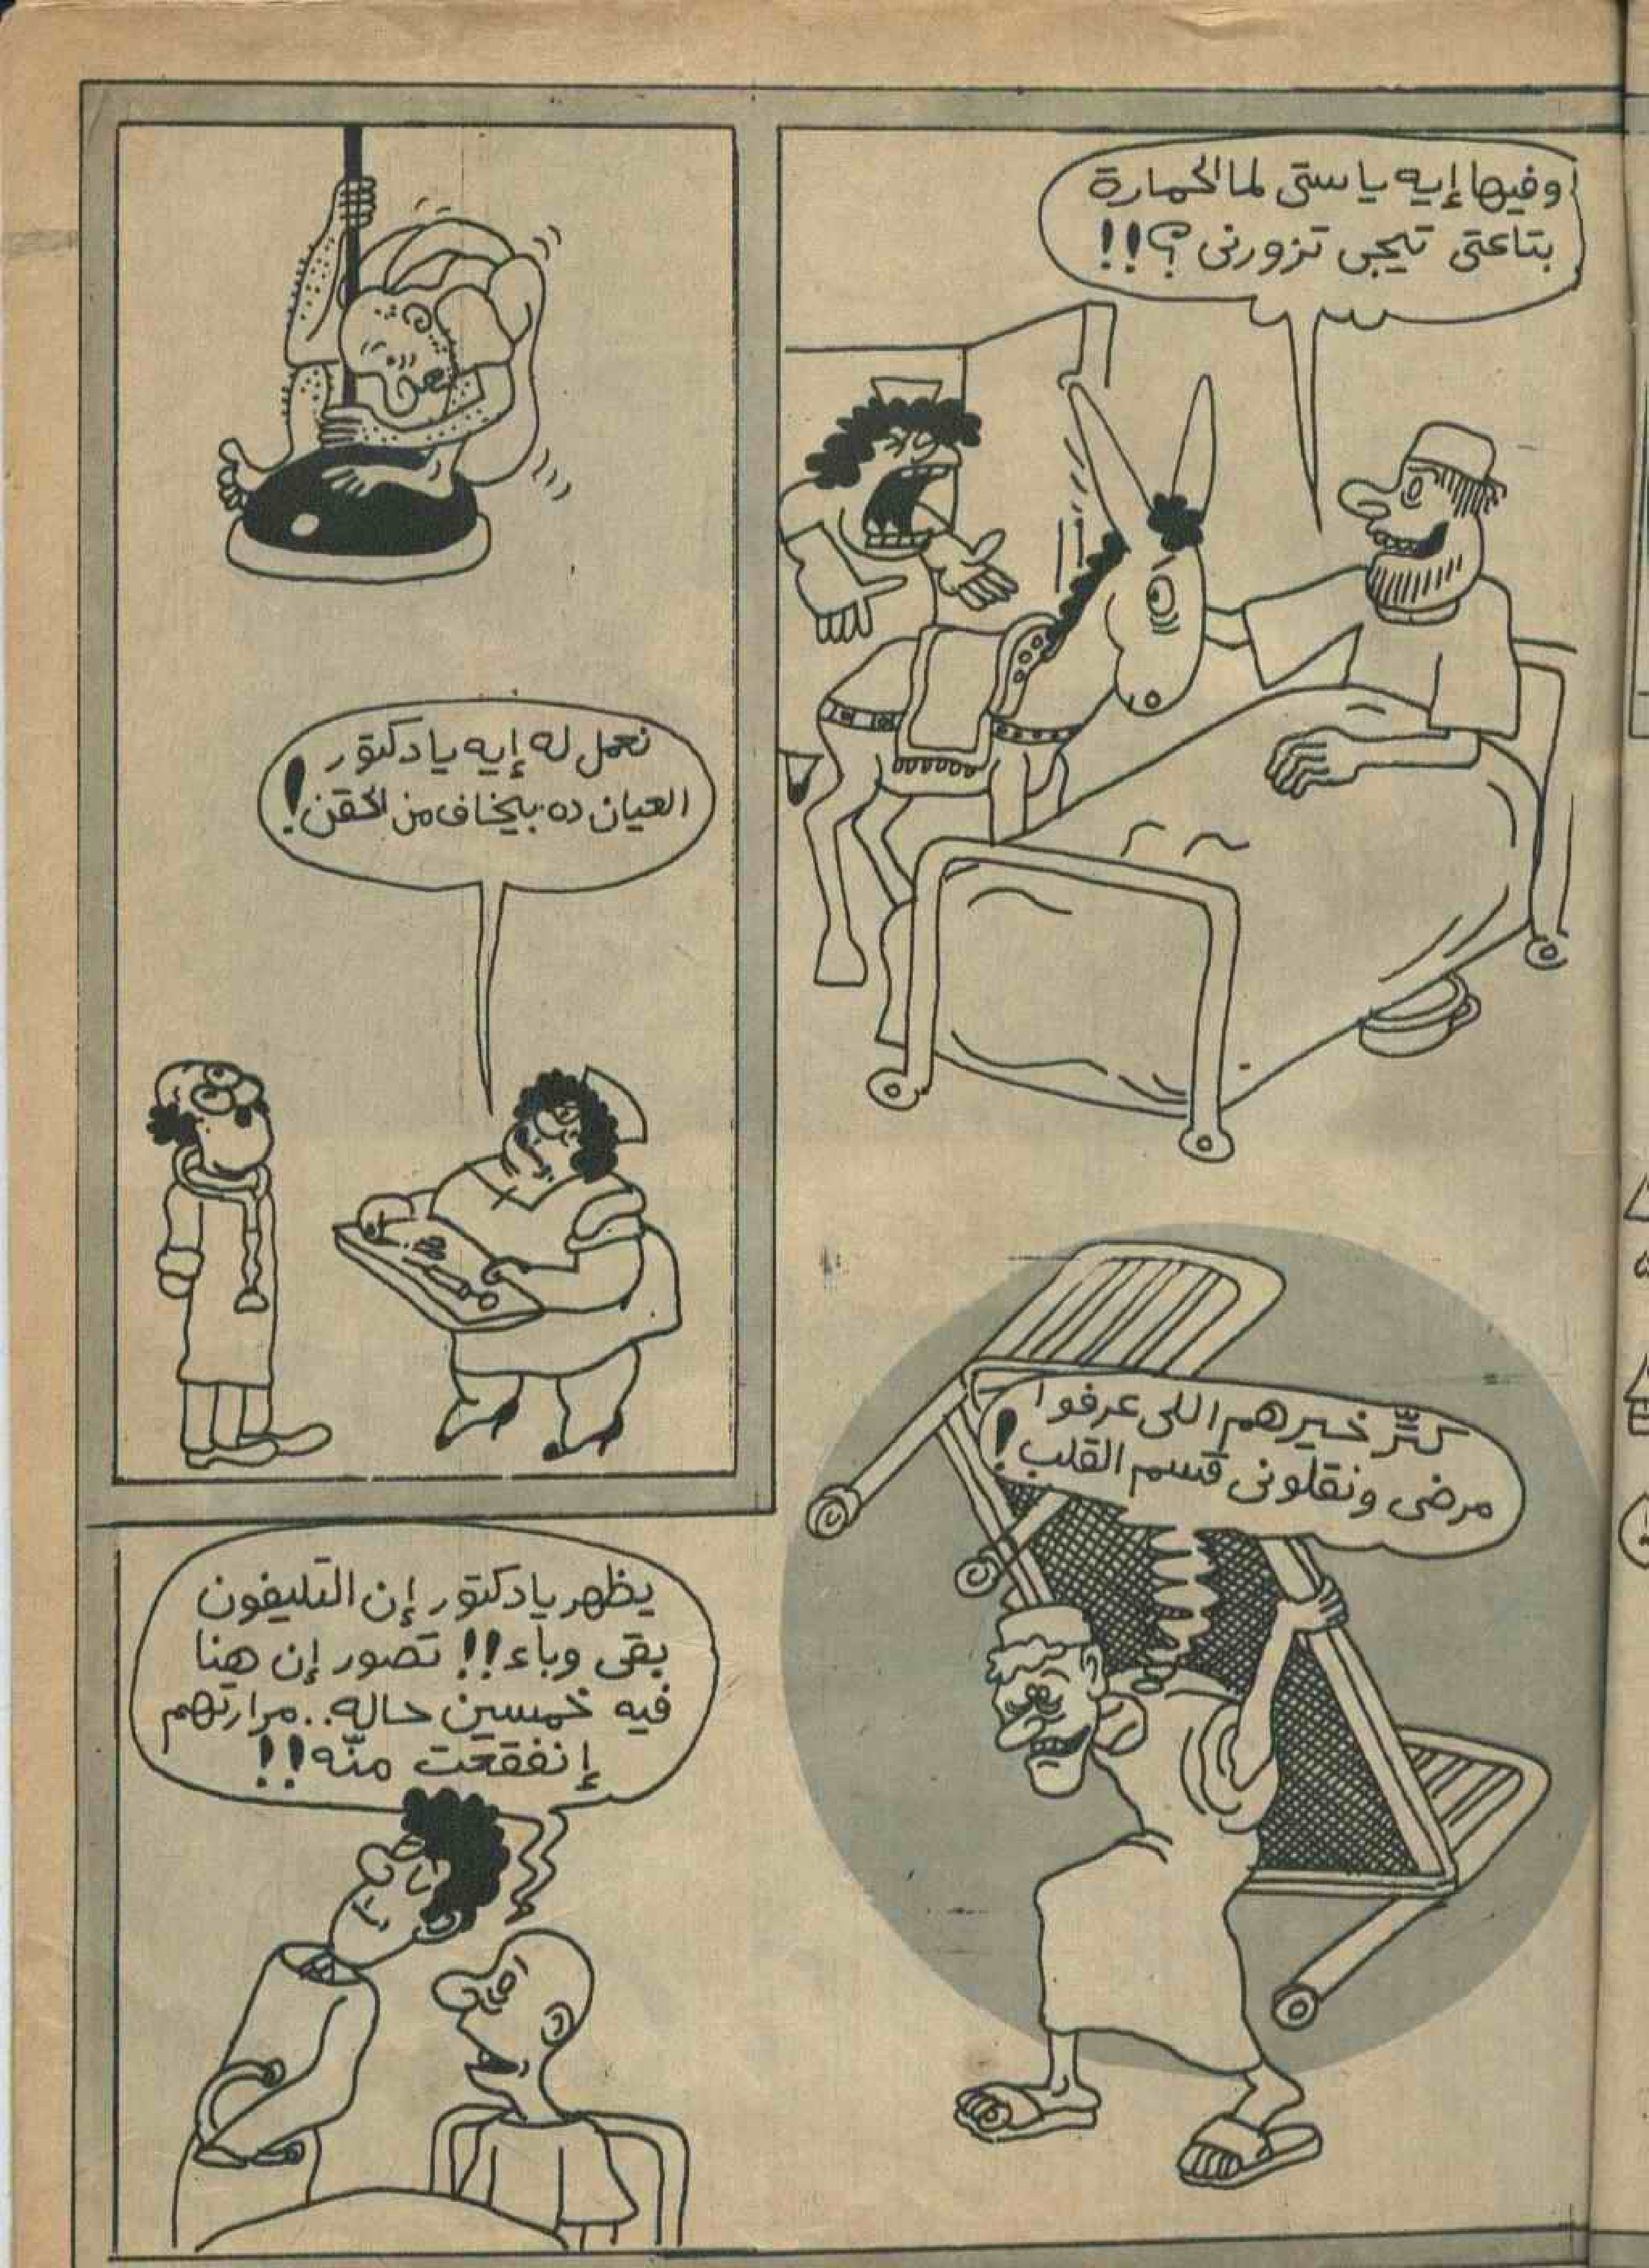 وفيها إيه ياستى لما الحمارة
بتاعتى تيجى تزورنى ؟!!
نعمل له إيه يادكتور
العيان ده بيخاف من الحقن !
كتّر خيرهم اللى عرفوا
مرضى ونقلونى قسم القلب !
يظهر يادكتور إن التليفون
بقى وباء !! تصور إن هنا
فيه خمسين حاله .. مرارتهم
إنفقعت منّه !!